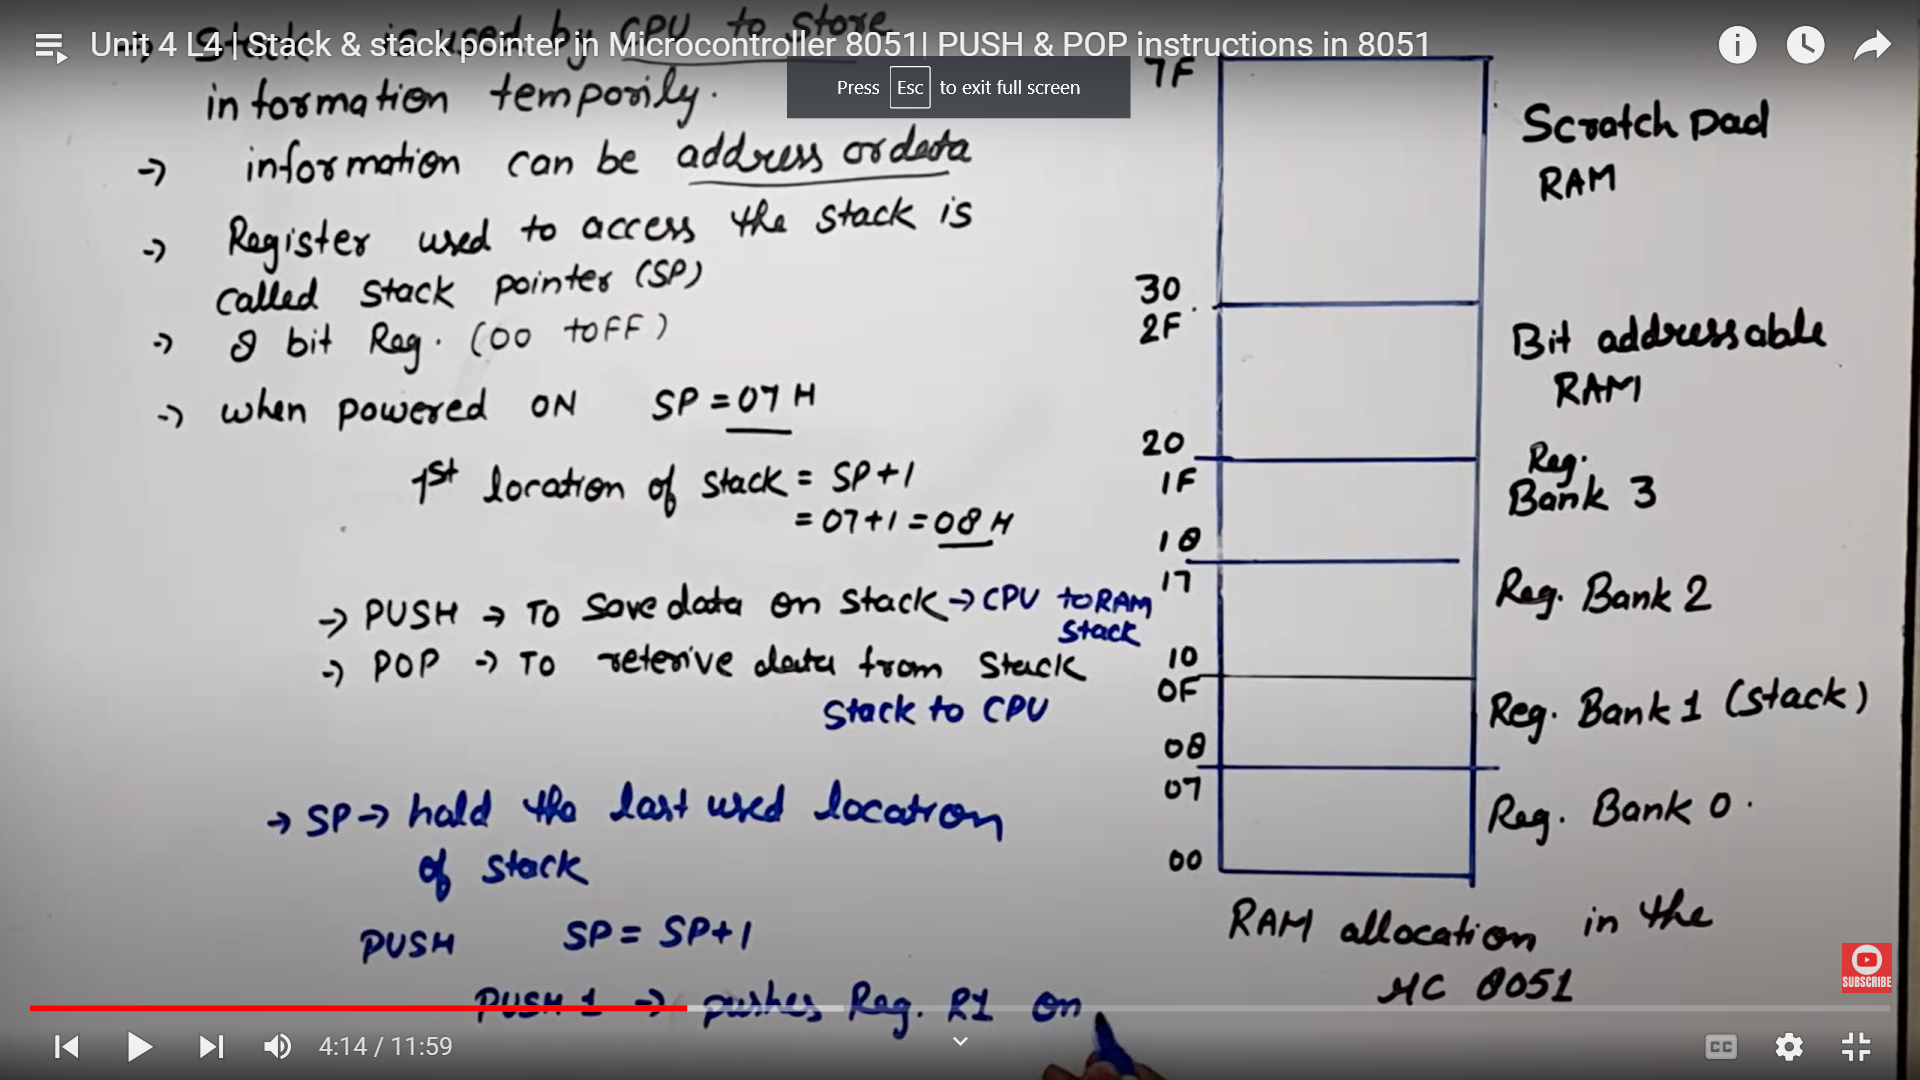 -> Stack is used by CPU to store
Unit 4 L4 | Stack & stack pointer in Microcontroller 8051| PUSH & POP instructions in 8051
Press Esc to exit full screen
information temporily.
-> information can be address or data
-> Register used to access the stack is
called stack pointer (SP)
-> 8 bit Reg. (00 to FF)
-> when powered ON SP = 07 H
1st location of stack = SP+1
= 07+1 = 08 H
-> PUSH -> To save data on stack -> CPU to RAM
stack
-> POP -> To reterive data from stack
Stack to CPU
-> SP -> hold the last used location
of stack
PUSH SP = SP+1
PUSH 1 -> pushes Reg. R1 on
7F
Scratch Pad
RAM
30
2F
Bit addressable
RAM
20
1F
Reg.
Bank 3
18
17
Reg. Bank 2
10
0F
Reg. Bank 1 (stack)
08
07
Reg. Bank 0.
00
RAM allocation in the
μC 8051
SUBSCRIBE
4:14 / 11:59
CC